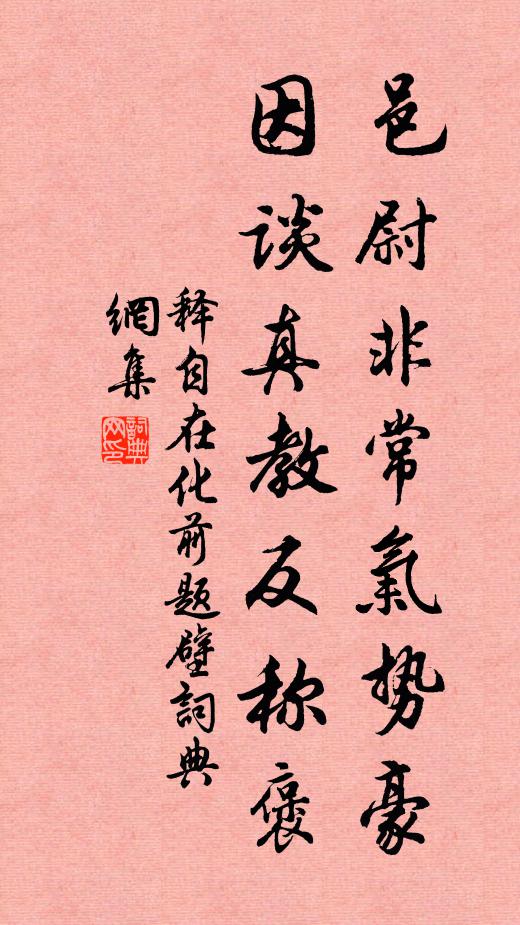 邑尉非常氣势豪
因谈真教反称褒
释自在化前题壁詞典
網集
詞典
网印